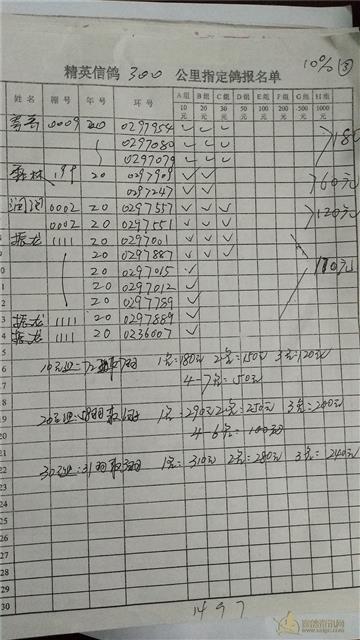 10% ③
精英信鸽 300 公里指定鸽报名单
姓名 棚号 年号 环号 A组 10元 B组 20元 C组 30元 D组 50元 E组 100元 F组 200元 G组 500元 H组 1000元
0009 20 0297954 ✓ ✓ ✓
0297080 ✓ ✓ ✓ 180
0297079 ✓ ✓ ✓
森林 199 20 0297909 ✓ ✓
0297247 ✓ ✓ 60元
润润 0002 20 0297557 ✓ ✓ ✓
0002 20 0297551 ✓ ✓ ✓ 120元
振龙 1111 20 0297001 ✓ ✓ ✓
20 0297887 ✓ ✓ ✓
20 0297015 ✓
20 0297012 ✓
20 0297789 ✓
振龙 1111 20 0297889 ✓
振龙 1111 20 0236007 ✓
10元组=72羽取7羽 1名=180元 2名=150元 3名=120元
4-7名=50元
20元组=58羽取6羽 1名=290元 2名=250元 3名=200元
4-6名=100元
30元组=31羽取3羽 1名=310元 2名=280元 3名=240元
22
30
1497